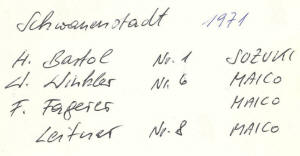 Schwanenstadt 1971
H. Bartol Nr. 1 SUZUKI
W. Winkler Nr. 6 MAICO
F. Fagerer MAICO
Leitner Nr. 8 MAICO